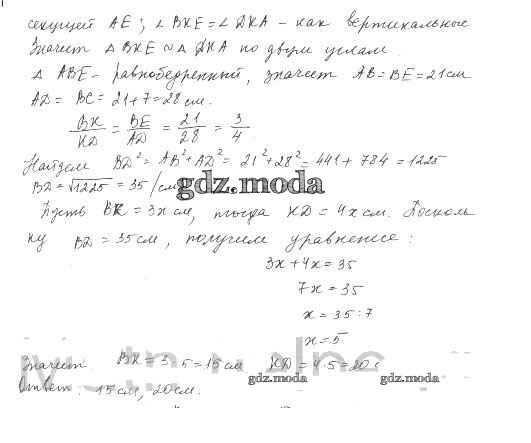 секущей AE; ∠BKE = ∠DKA – как вертикальные
Значит △BKE ∾ △DKA по двум углам.
△ABE – равнобедренный, значит AB = BE = 21 см
AD = BC = 21 + 7 = 28 см.
BK/KD = BE/AD = 21/28 = 3/4.
Найдем BD² = AB² + AD² = 21² + 28² = 441 + 784 = 1225
BD = √1225 = 35 /см
gdz.moda
Пусть BK = 3x см, тогда KD = 4x см. Посколь
ку BD = 35 см, получим уравнение:
3x + 4x = 35
7x = 35
x = 35 : 7
x = 5
Значит. BK = 3 · 5 = 15 см KD = 4 · 5 = 20 с
gdz.moda gdz.moda
Ответ. 15 см, 20 см.